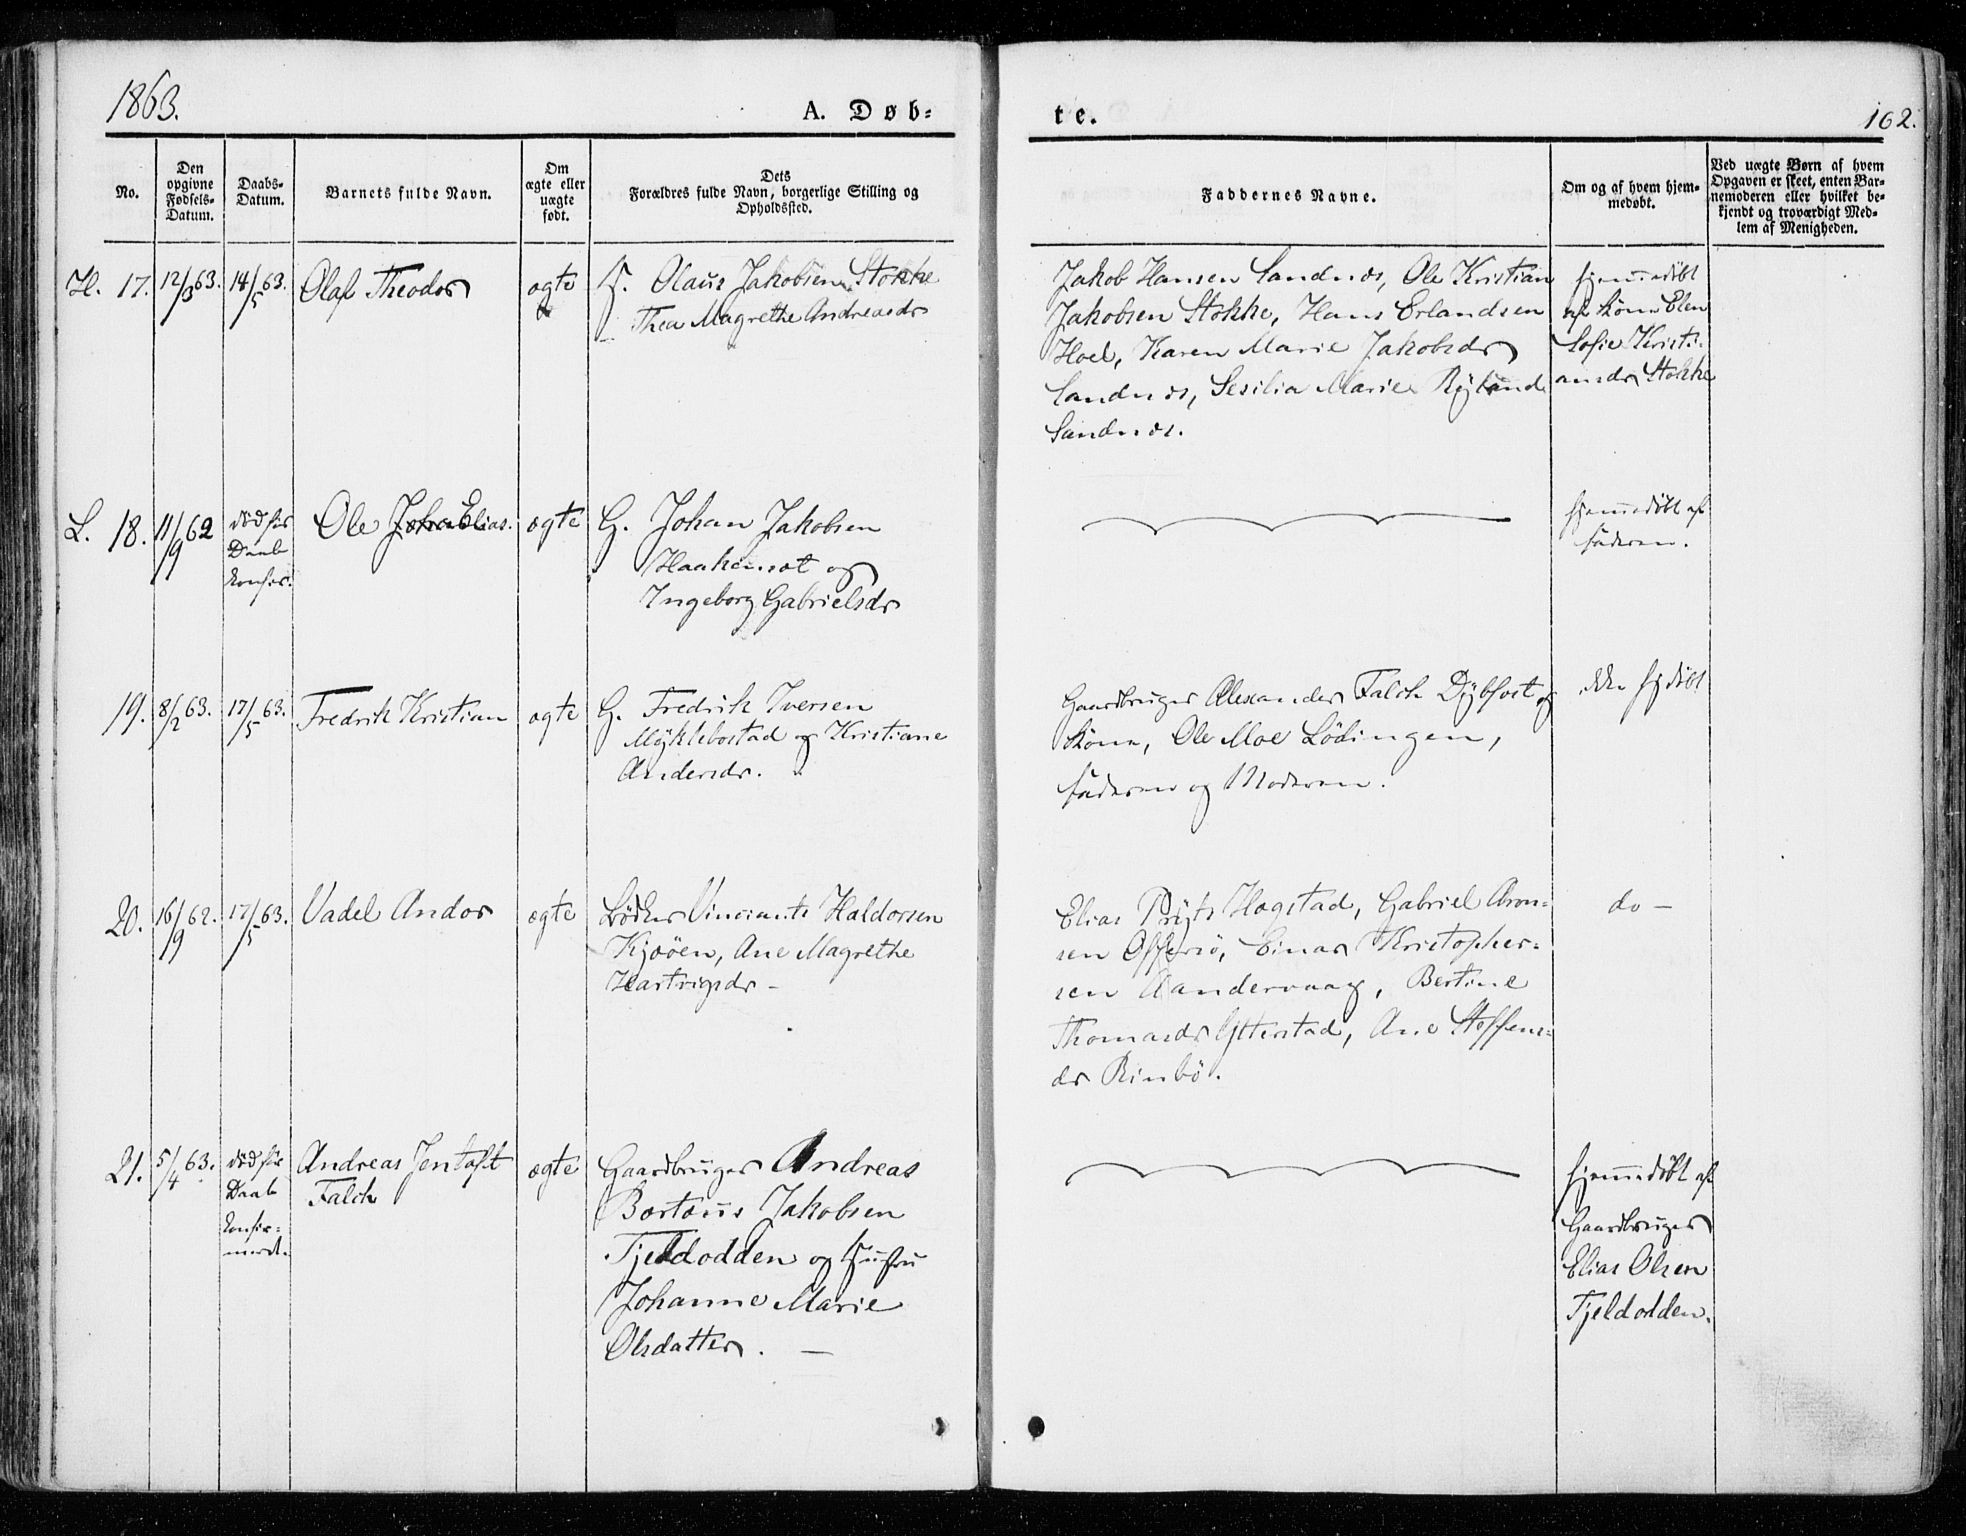 1863.
A. Døb=
te.
162.
No.
Den
opgivne
Fødsels-
Datum.
Daabs-
Datum.
Barnets fulde Navn.
Om
ægte eller
uægte
født.
Dets
Forældres fulde Navn, borgerlige Stilling og
Opholdssted.
Faddernes Navne.
Om og af hvem hjem-
medøbt.
Ved uægte Børn af hvem
Opgaven er skeet, enten Bar-
nemoderen eller hvilket be-
kjendt og troværdigt Med-
lem af Menigheden.
H. 17.
12/3 63.
14/5 63.
Olaf Theodor
ægte
Olaus Jakobsen Stokke
Thea Magrethe Andreasdr
Jakob Hansen Sandnæs, Ole Kristian
Jakobsen Stokke, Hans Erlandsen
Hoel, Karen Marie Jakobsdr
Sandnæs, Sesilia Marie
Sandnæs.
hjemmedøbt
af Elen
Sofie Kristi-
ansdr Stokke
L. 18.
11/9 62
død før
Daab
konfir.
Ole Elias.
ægte
G. Johan Jakobsen
og
Ingeborg Gabrielsdr
hjemmedøbt af
faderen.
19.
8/2 63.
17/5 63.
Fredrik Kristian
ægte
G. Fredrik Iversen
Myklebostad og Kristiane
Andersdr.
Gaardbruger Alexander Falch Dybfost og
Kone, Ole Moe Lödingen,
faderen og Moderen.
ikke hjdöbt
20.
16/9 62.
17/5 63.
Vadel Andor
ægte
Bödker Haldorsen
Kjööen, Ane Magrethe
Hartvigsdr -
Elias Pryts Hogstad, Gabriel Aron-
sen Offersö, Einar Kristopher-
sen Aandervaag, Bertine
Thomasdr Ytterstad, Ane Steffens-
dr Rinbö.
do -
21.
5/4 63.
død før
Daab
konfir-
meret.
Andreas Jentoft
Falch
ægte
Gaardbruger Andreas
Bartæus Jakobsen
Fjeldodden og Hustru
Johanne Marie
Olsdatter. -
hjemmedøbt af
Gaardbruger
Elias Olsen
Fjeldodden.